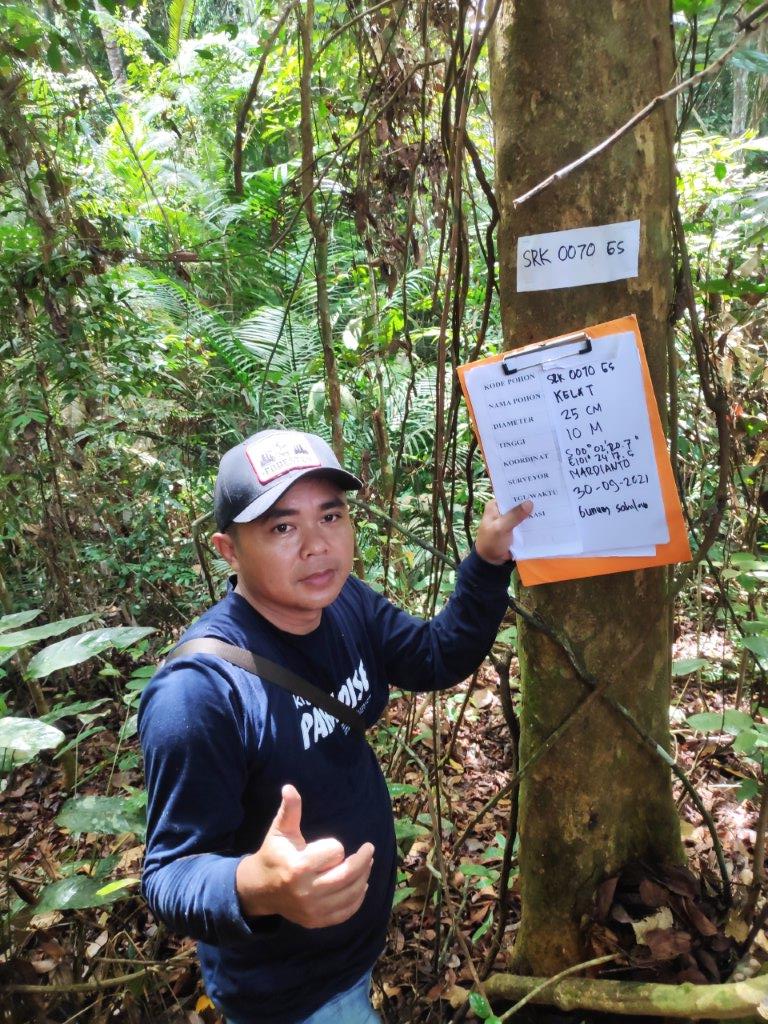 SRK 0070 ES
KODE POHON SRK 0070 ES
NAMA POHON KELAT
DIAMETER 25 CM
TINGGI 10 M
KOORDINAT S 00° 02' 20.7"
SURVEYOR MARDIANTO
TGL/WAKTU 30-09-2021
KASI Gunung
PARADISE